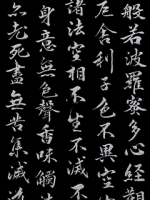 般若波羅蜜多心經觀
厄舍利子色不異空
諸法空相不生不滅不
身意無色聲香味觸法
老死盡無苦集滅道